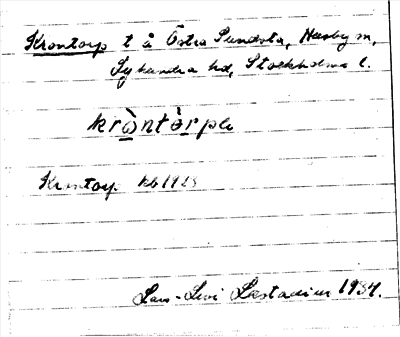 Krontorp t å Östra Sundsta, Husby sn,
Lyhundra hd, Stockholms l.
kròntòrpe
Krontorp kb 1925
Lars-Levi Læstadius 1934.